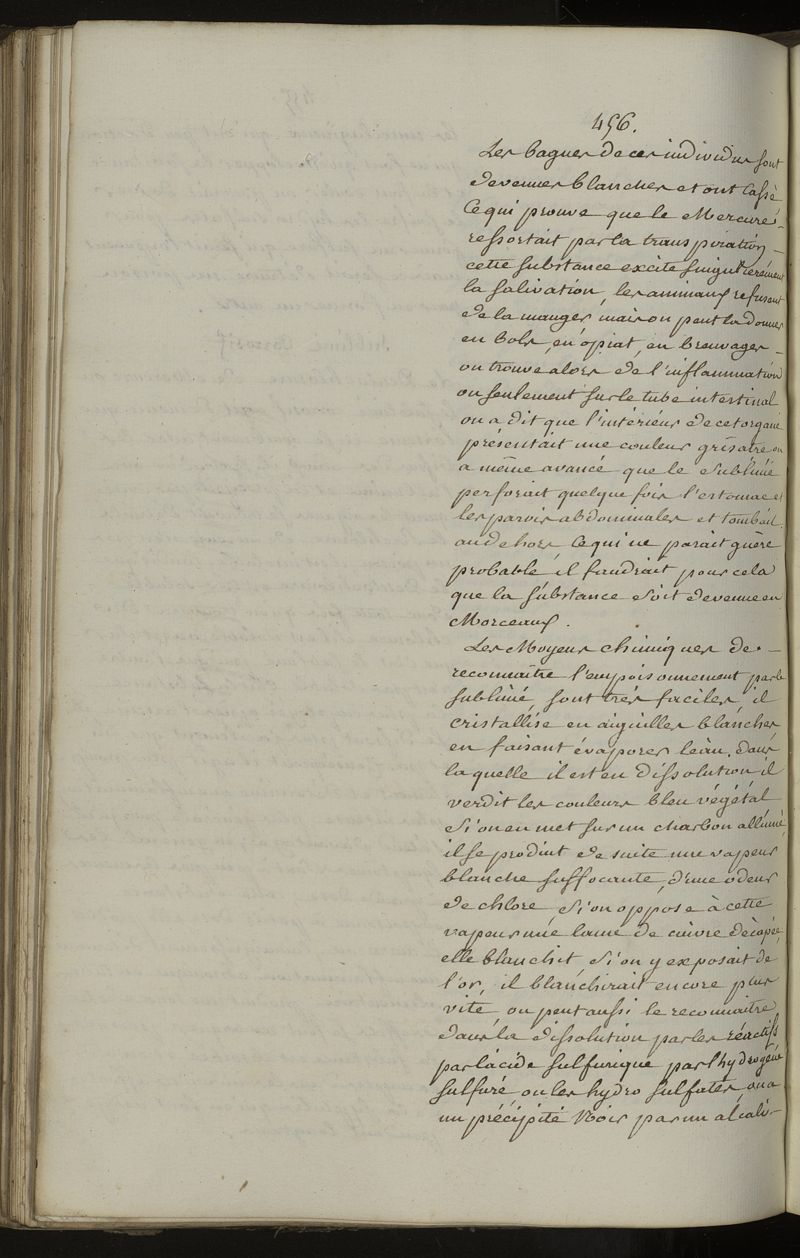 456.
Les bagues de ces individus sont
devenues blanches et ont cassé
Ce qui prouve que le Mercure
ressortait par la transpiration
cette substance excite singulierement
la salivation, les animaux refusent
de la manger mais on peut la donner
en bols, en opiat, en breuvages
on trouve alors de l'inflammation
ou seulement sur le tube intestinal
on a dit que l'intérieur de cet organe
présentait une couleur grisatre on
a même avancé que le sublimé
perforait quelque fois l'estomac et
les parois abdominales et tombait
au dehors ce qui ne parait guère
probable il faudrait pour cela
que la substance soit devenue en
Morceaux.
Les Moyens chimiques de
reconnaitre l'empoisonnement par le
sublimé, sont très faciles, il
cristallise en aiguilles blanches
en faisant évaporer l'eau dans
la quelle il est en dissolution il
verdit les couleurs bleu végétal
Si on en met sur un charbon allumé
il se produit de suite une vapeur
blanche suffocante, d'une odeur
de chlore, Si on oppose à cette
vapeur une lame de cuivre décapée,
elle blanchit Si on y exposait de
l'or, il blanchirait encore plus
vite, on peut aussi le reconnaitre
dans la dissolution par les réactifs
par l'acide sulfurique par l'hydrogène
sulfuré, ou les hydro sulfates, on a
un précipité Noir par un alcali